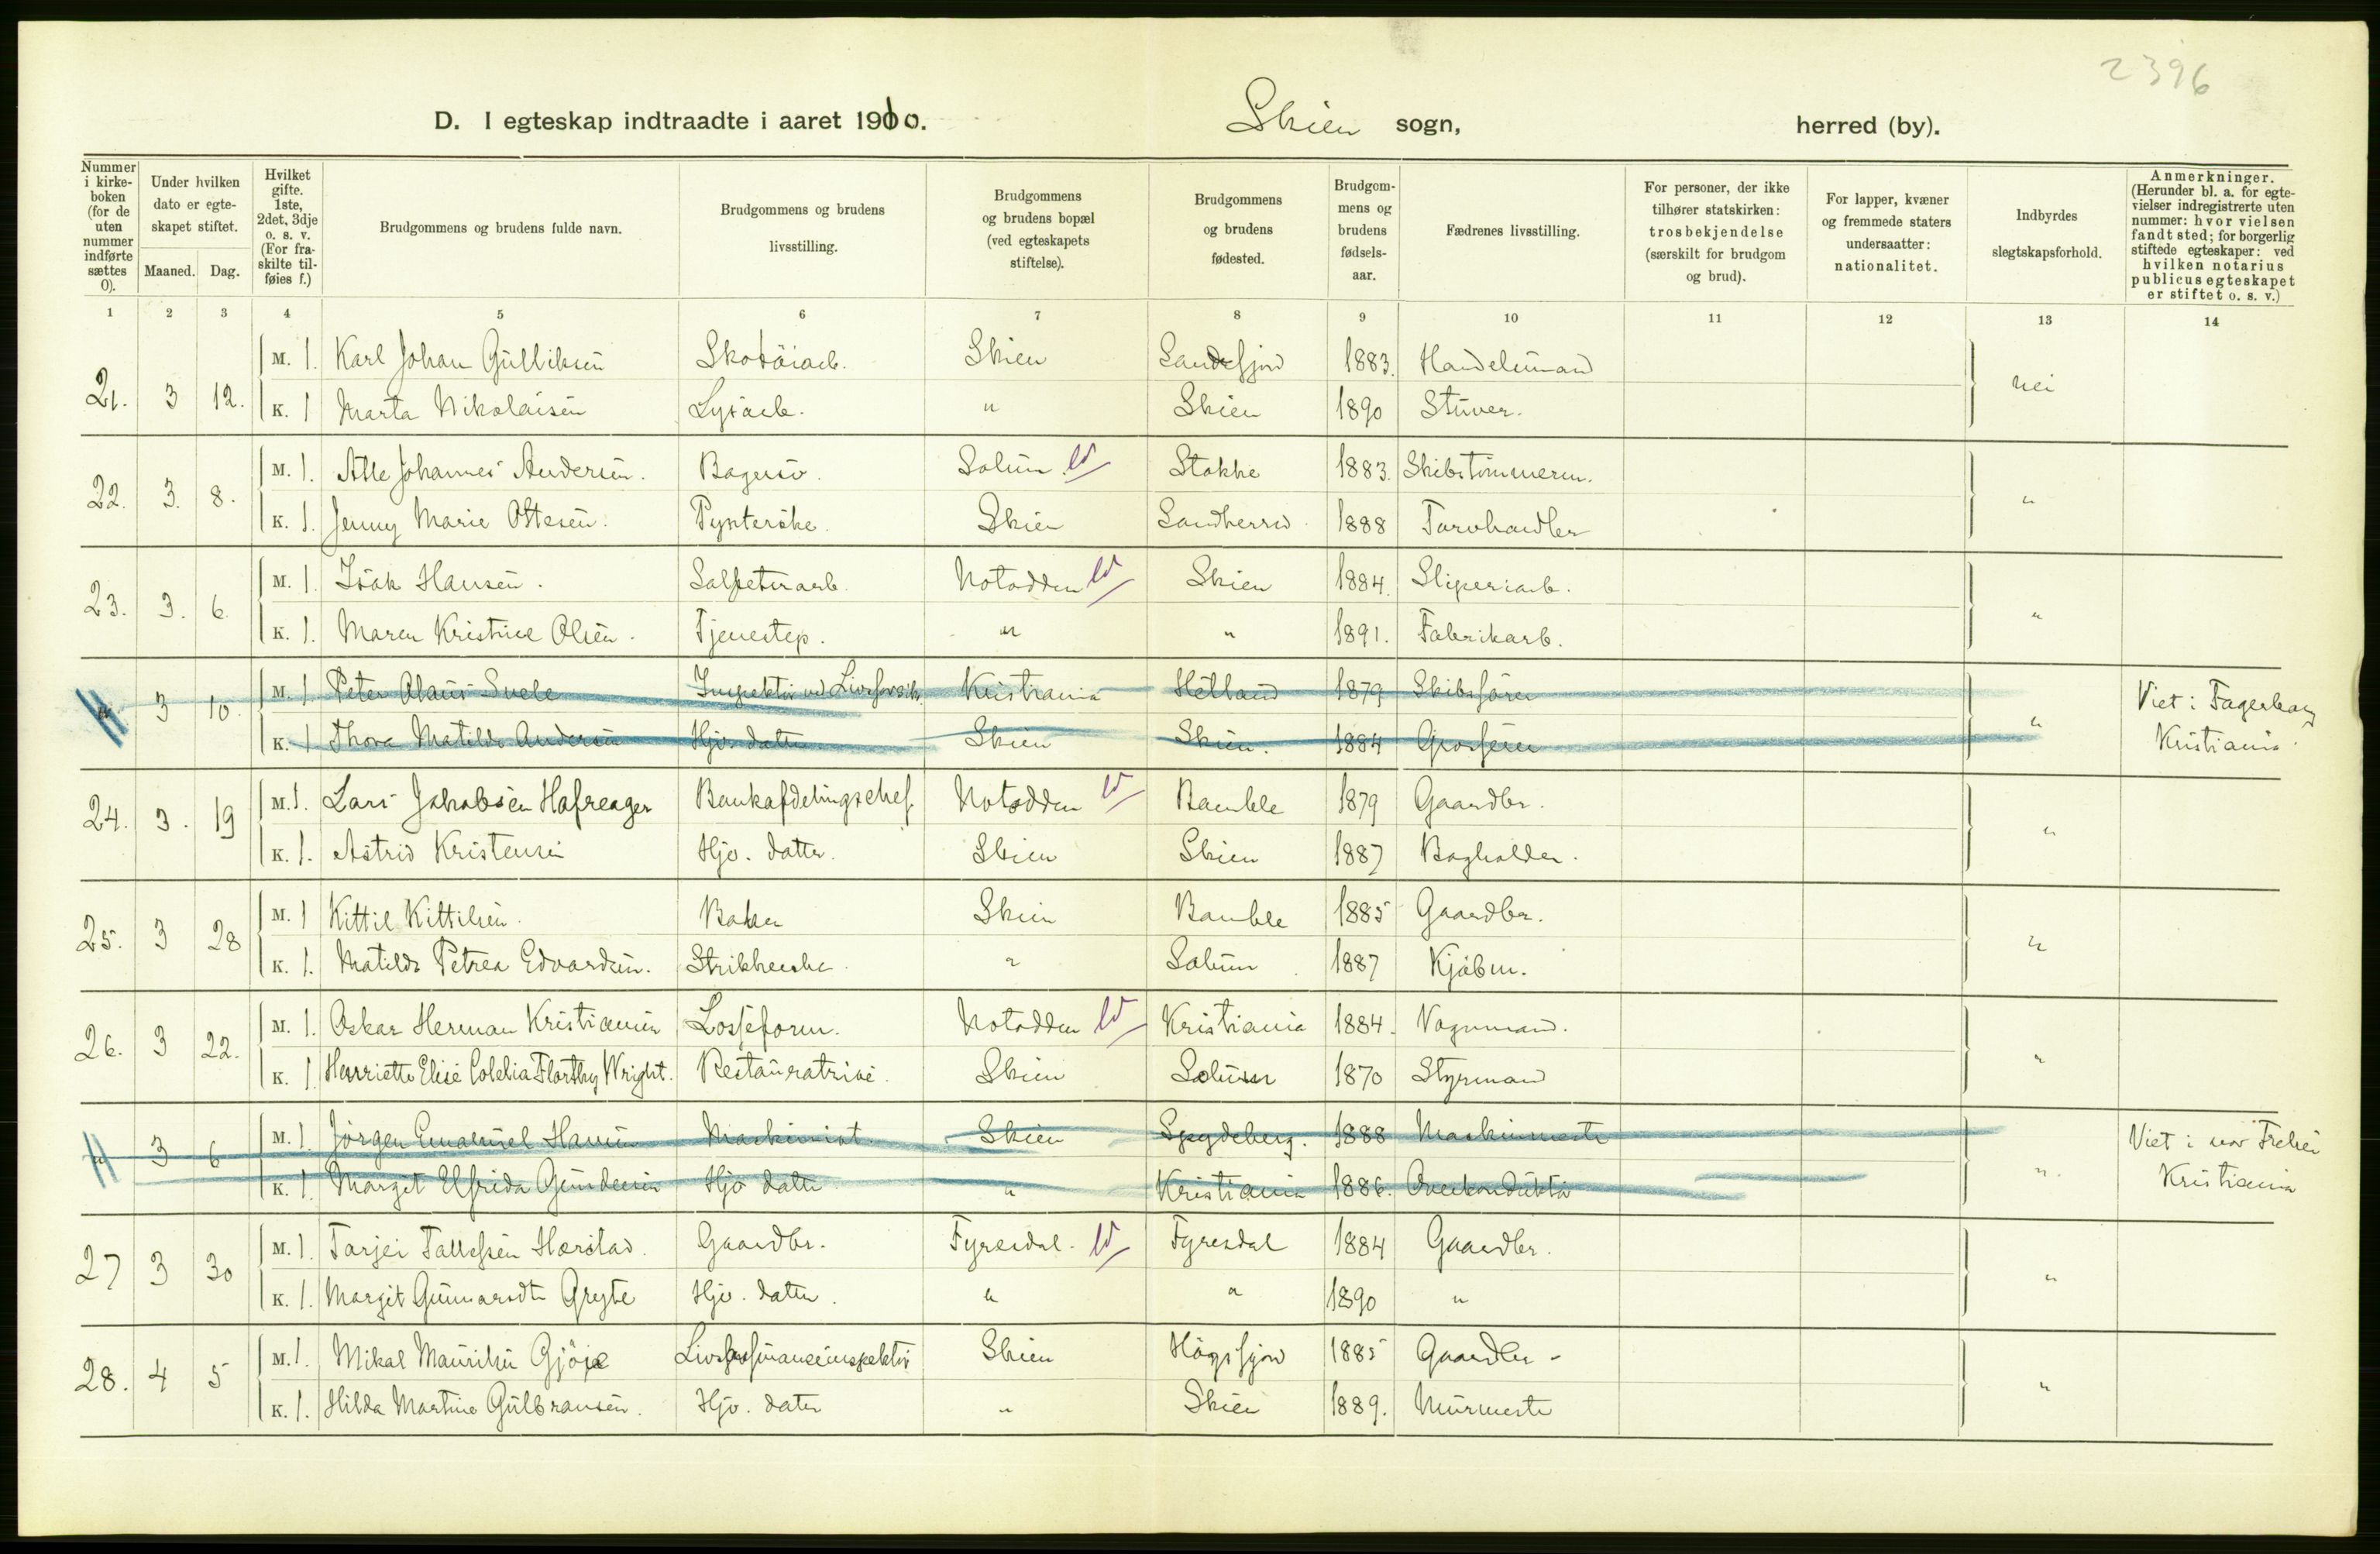 2396
D. I egteskap indtraadte i aaret 1910. Skien sogn, herred (by).
Nummer i kirke-boken (for de uten nummer indførte sættes 0). Under hvilken dato er egte-skapet stiftet. Maaned. Dag. Hvilket gifte. 1ste, 2det, 3dje o. s. v. (For fra-skilte til-føies f.) Brudgommens og brudens fulde navn. Brudgommens og brudens livsstilling. Brudgommens og brudens bopæl (ved egteskapets stiftelse). Brudgommens og brudens fødested. Brudgom-mens og brudens fødsels-aar. Fædrenes livsstilling. For personer, der ikke tilhører statskirken: trosbekjendelse (særskilt for brudgom og brud). For lapper, kvæner og fremmede staters undersaatter: nationalitet. Indbyrdes slegtskapsforhold. Anmerkninger. (Herunder bl. a. for egte-vielser indregistrerte uten nummer: hvor vielsen fandt sted; for borgerlig stiftede egteskaper: ved hvilken notarius publicus egteskapet er stiftet o. s. v.)
1 2 3 4 5 6 7 8 9 10 11 12 13 14
21. 3 12. M. 1. Karl Johan Gulliksen Skotöiarb. Skien Sandefjord 1883. Handelsmand nei
K. 1 Marta Nikolaisen Lysarb. " Skien 1890 Stuver.
22. 3. 8. M. 1. Atle Johannes Andersen. Bagersv. Solum Stokke 1883. Skibstömmerm. "
K. 1. Jenny Marie Ottesen. Pynterske. Skien Sandherred 1888 Farvhandler
23. 3. 6. M. 1. Isak Hansen. Salpeterarb. Notodden Skien 1884. Sliperiarb. "
K. 1. Maren Kristine Olsen. Tjenestep. " " 1891. Fabrikarb.
" 3 10. M. 1 Peter Olaus Svele Inspektör ved Livsforsik. Kristiania Hetland 1879 Skibsförer " Viet i Fagerborg
K. 1 Thora Matilde Andersen Hjv. datter Skien Skien. 1884 Grosserer Kristiania.
24. 3. 19 M. 1. Lars Jakobsen Hafreager Bankafdelingschef. Notodden Bamble 1879 Gaardbr. "
K. 1. Astrid Kristensen Hjv. datter. Skien Skien 1887 Bogholder.
25. 3 28 M. 1 Kittil Kittilsen. Baker Skien Bamble 1885 Gaardbr. "
K. 1. Matilde Petrea Edvardsen. Strikkerske. " Solum 1887 Kjöbm.
26. 3 22. M. 1. Oskar Herman Kristiansen Losseform. Notodden Kristiania 1884. Vognmand. "
K. 1 Henriette Elise Wright. Restauratrise. Skien Solum 1870 Styrmand
" 3 6 M. 1. Jörgen Emanuel Hansen Maskinist. Skien Spydeberg. 1888 Maskinmester " Viet i vor Frelser
K. 1. Margit Elfrida Gundersen Hjv datter " Kristiania 1886. Overkonduktör Kristiania
27 3 30 M. 1. Tarjei Tallefsen Hærstad. Gaardbr. Fyresdal. Fyresdal 1884 Gaardbr. "
K. 1. Margit Gunnarsdtr Gryte Hjv. datter. " " 1890 "
28. 4 5 M. 1. Mikal Mauritsen Gjöse Skien Högsfjord 1885 Gaardbr. "
K. 1. Hilda Martine Gulbransen. Hjv. datter " Skien 1889. Murmester